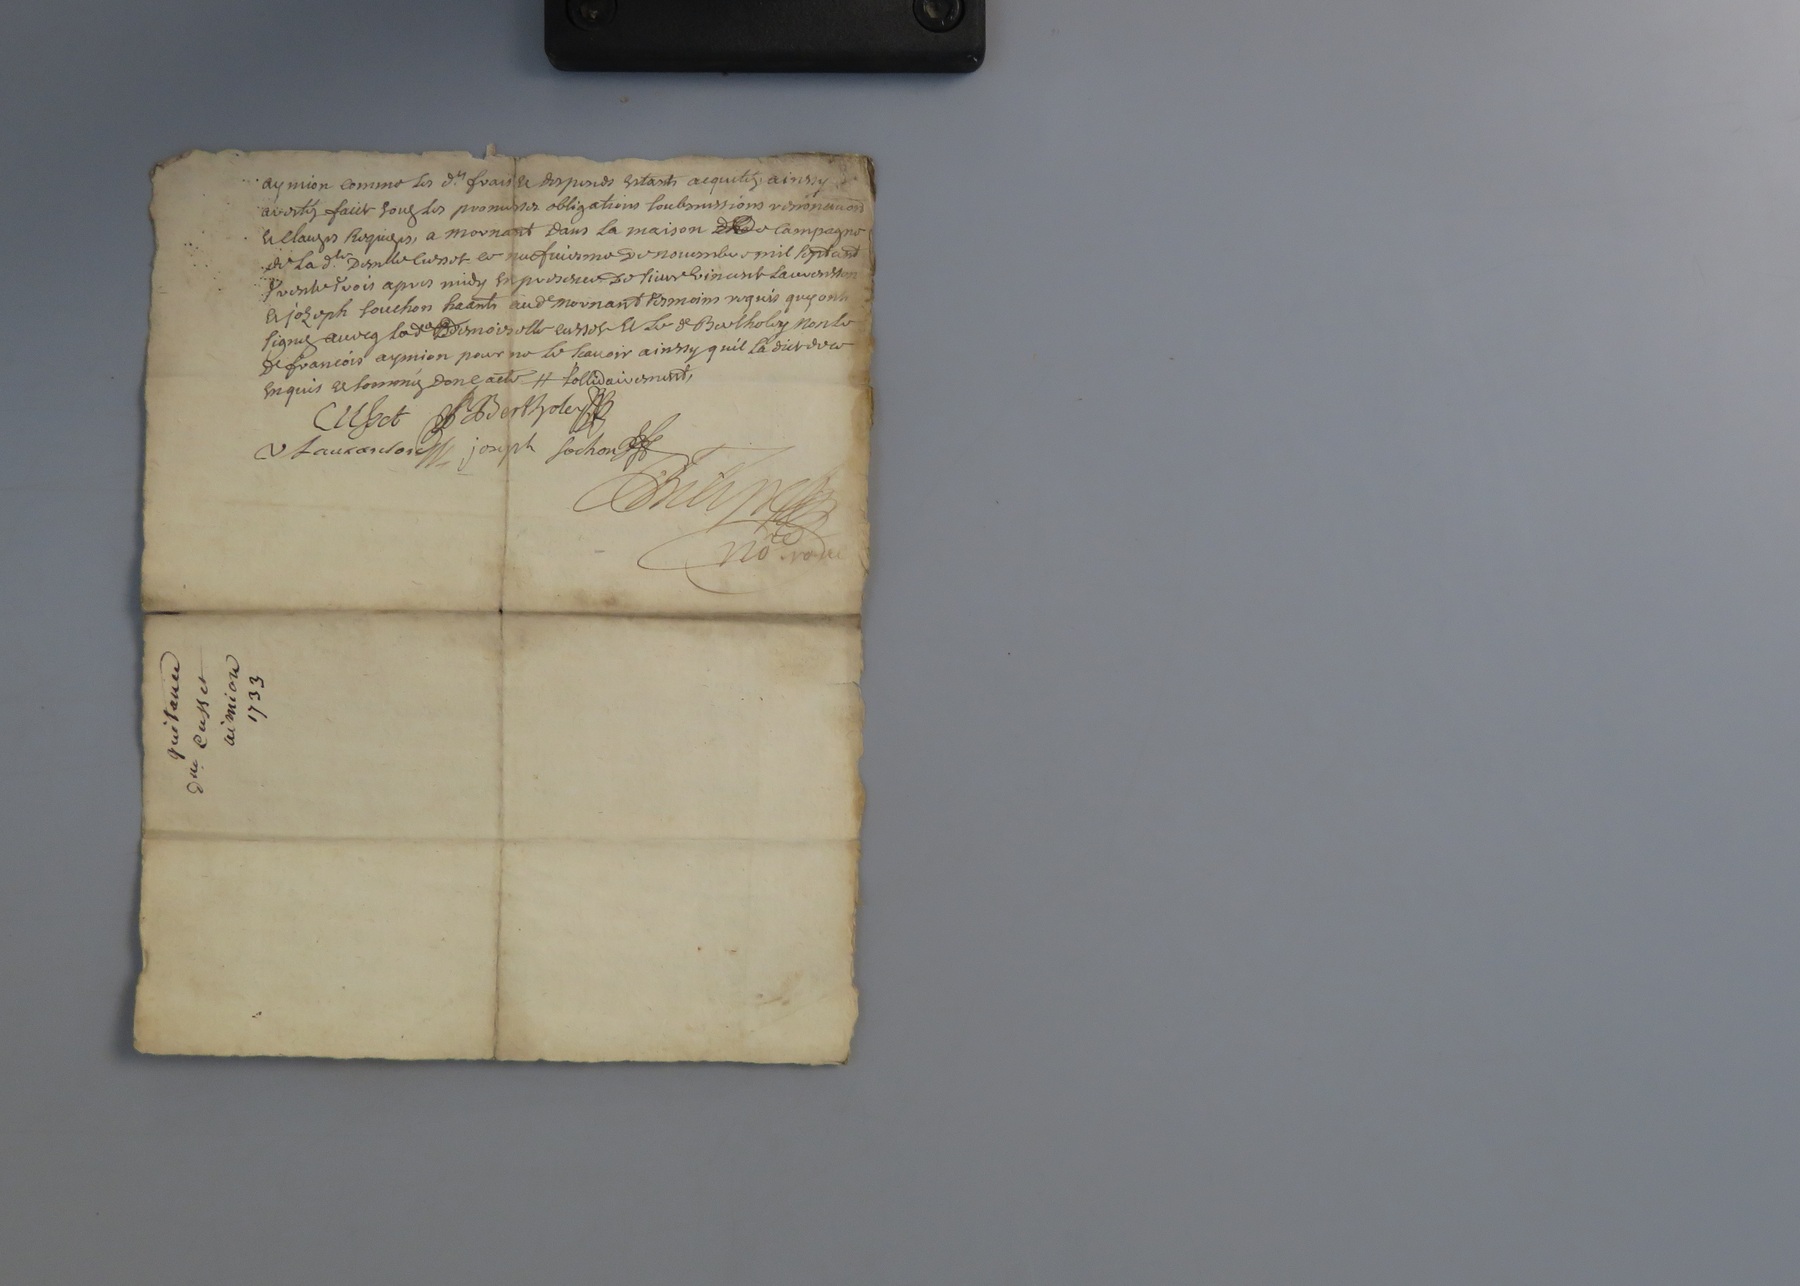 aymion comme les d.ts frais et despends estants acquités, ainsy
a esté faict sous les promesses obligations soubmissions renonciations
et clauses Requises, a mornant dans la maison de campagne
de la d.te Dem.lle Cusset le neufuiesme de nouembre mil sept cent
trente trois apres midy en presence de sieur Vincent Lauranson
et joseph souchon haants aud. mornant tesmoins requis quy ont
signé auecq lad.e Demoiselle cusset et le s.r Bertholey non led.
de francois aymion pour ne le scauoir ainsy quil la dict de ce
enquis et sommé donc acte # sollidairement,
CUsset Bertholey
V Lauranson joseph sochon
no.re royal
quitance
d.lle Cusset
aimion
1733